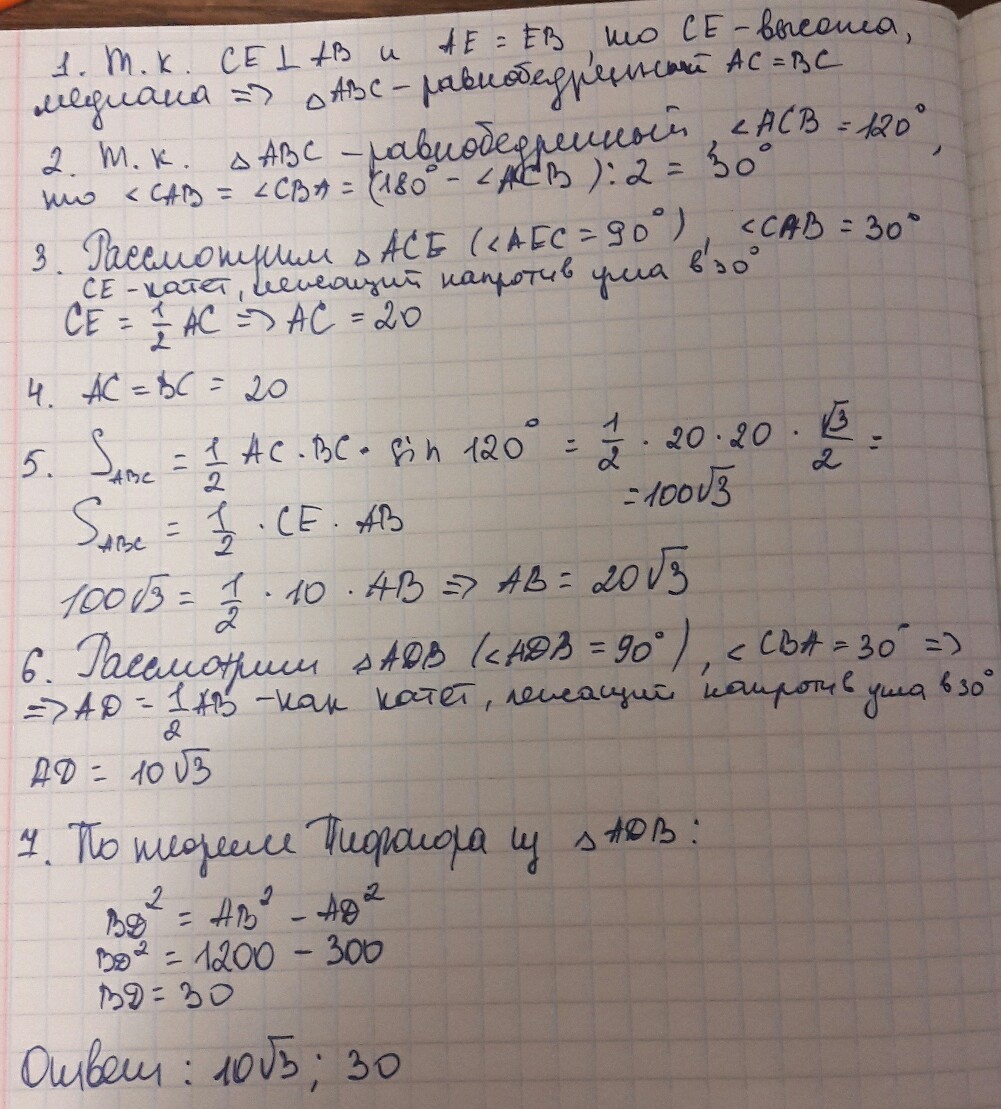 1. Т.к. CE ⊥ AB и AE = EB, то CE - высота,
медиана => △ABC - равнобедренный AC = BC
2. Т.к. △ABC - равнобедренный, <ACB = 120°,
то <CAB = <CBA = (180° - <ACB):2 = 30°
3. Рассмотрим △ACE (<AEC = 90°), <CAB = 30°
CE - катет, лежащий напротив угла в 30°
CE = 1/2 AC => AC = 20
4. AC = BC = 20
5. S_ABC = 1/2 AC · BC · sin 120° = 1/2 · 20 · 20 · √3/2 =
= 100√3
S_ABC = 1/2 · CE · AB
100√3 = 1/2 · 10 · AB => AB = 20√3
6. Рассмотрим △ADB (<ADB = 90°), <CBA = 30° =>
=> AD = 1/2 AB - как катет, лежащий напротив угла в 30°
AD = 10√3
7. По теореме Пифагора из △ADB:
BD² = AB² - AD²
BD² = 1200 - 300
BD = 30
Ответ: 10√3; 30